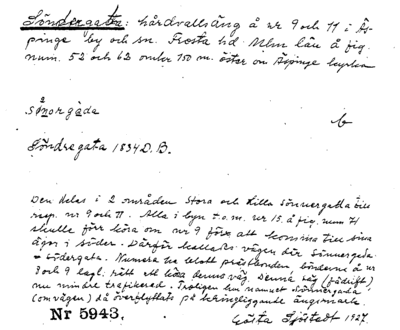 Söndergata: hårdvallsäng å nr 9 och 11 i Äs-
pinge by och sn. Frosta hd. Mlm län å fig.
num. 52 och 62 omkr 150 m. öster om Äspinge byplan
sönorgåda
b
Söndregata 1834 D. B.
Den delas i 2 områden Stora och Lilla Sönnergada till
resp. nr 9 och 11. Alla i byn t.o.m. nr 15 å fig. num 71
skulle förr köra om nr 9 för att komma till sina
ägor i söder. Därför kallades vägen där Sönnergada
= södergata. Numera ha blott prästlönden, bönderna å nr
8 och 9 lagl. rätt att leda denna väg. Denna väg (fädrift)
nu mindre trafikered. Troligen har namnet Sönnergada
(omvägen) då överflyttats på kringliggande ängsmark.
Nr 5943. Gösta Sjöstedt 1927.